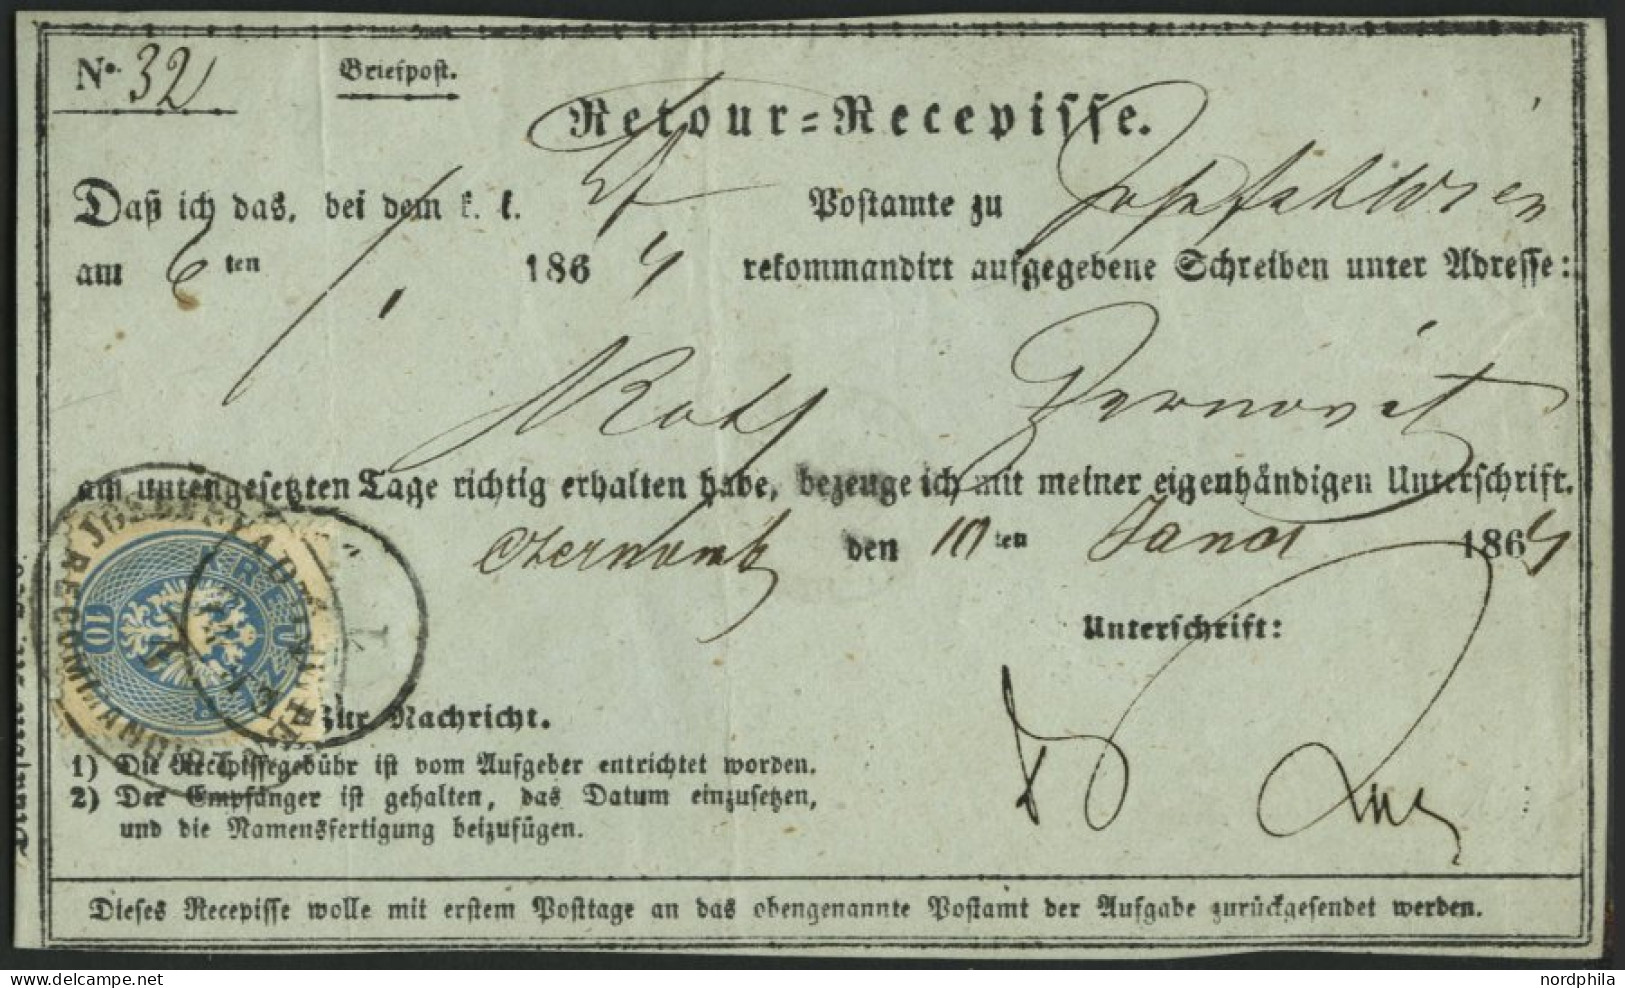 No. 32
Briefpost.
Retour-Recepisse.
Daß ich das, bei dem k. k. Postamte zu Josefstadt Wien
am 6ten /1. 1864 rekommandirt aufgegebene Schreiben unter Adresse:
am untengesetzten Tage richtig erhalten habe, bezeuge ich mit meiner eigenhändigen Unterschrift.
den 10ten 1864
Unterschrift:
JOSEFSTADT
RECOMMANDIRT
10 KREUZER
Zur Nachricht.
1) Die Recepissegebühr ist vom Aufgeber entrichtet worden.
2) Der Empfänger ist gehalten, das Datum einzusetzen,
und die Namensfertigung beizufügen.
Dieses Recepisse wolle mit erstem Posttage an das obengenannte Postamt der Aufgabe zurückgesendet werden.
nordphila